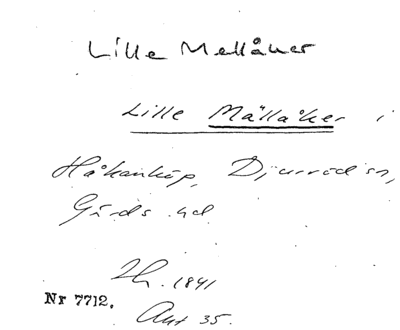 Lille Mellåker
Lille Mällåker i
Håkanköp, Djurröd sn,
Gärds hd
Lh. 1841
Nr 7712.
Akt 35.